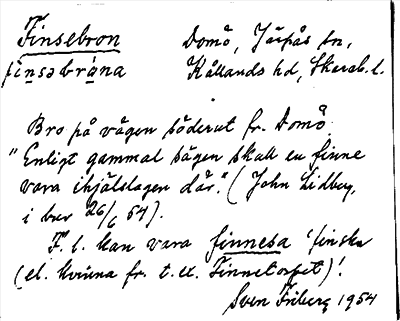 Finsebron Domö, Järpås sn,
finsəbråna Kållands hd, Skarab. l.
Bro på vägen söderut fr. Domö.
"Enligt gammal sägen skall en finne
vara ihjälslagen där." (John Lidberg,
i brev 26/6 54).
F. l. kan vara finnesa 'finska
(el. kvinna fr. t. ex. Finnetorpet)'.
Sven Friberg 1954